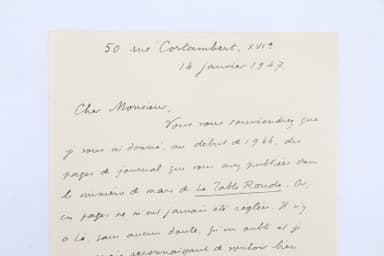 50 rue Cortambert, XVIe
14 janvier 1947
Cher Monsieur,
Vous vous souviendrez que
je vous ai donné, au début de 1946, des
pages de journal que vous avez publiées dans
le numéro de mars de La Table Ronde. Or,
ces pages ne m'ont jamais été réglées. Il n'y
a là, sans aucun doute, qu'un oubli et je
reconnaissant de vouloir bien